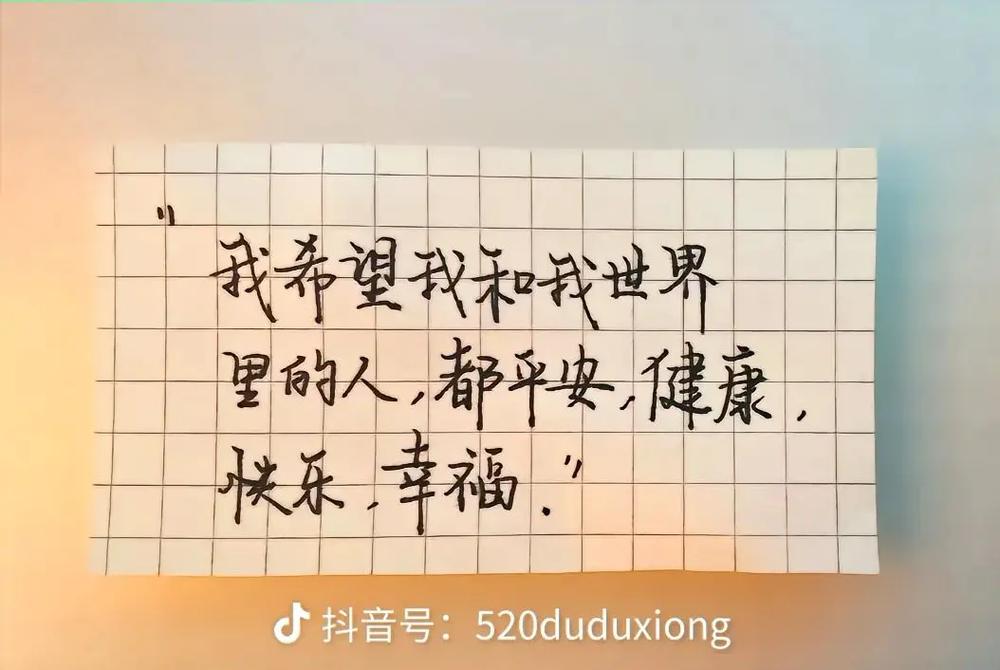 "
我希望我和我世界
里的人,都平安,健康,
快乐,幸福."
抖音号：520duduxiong